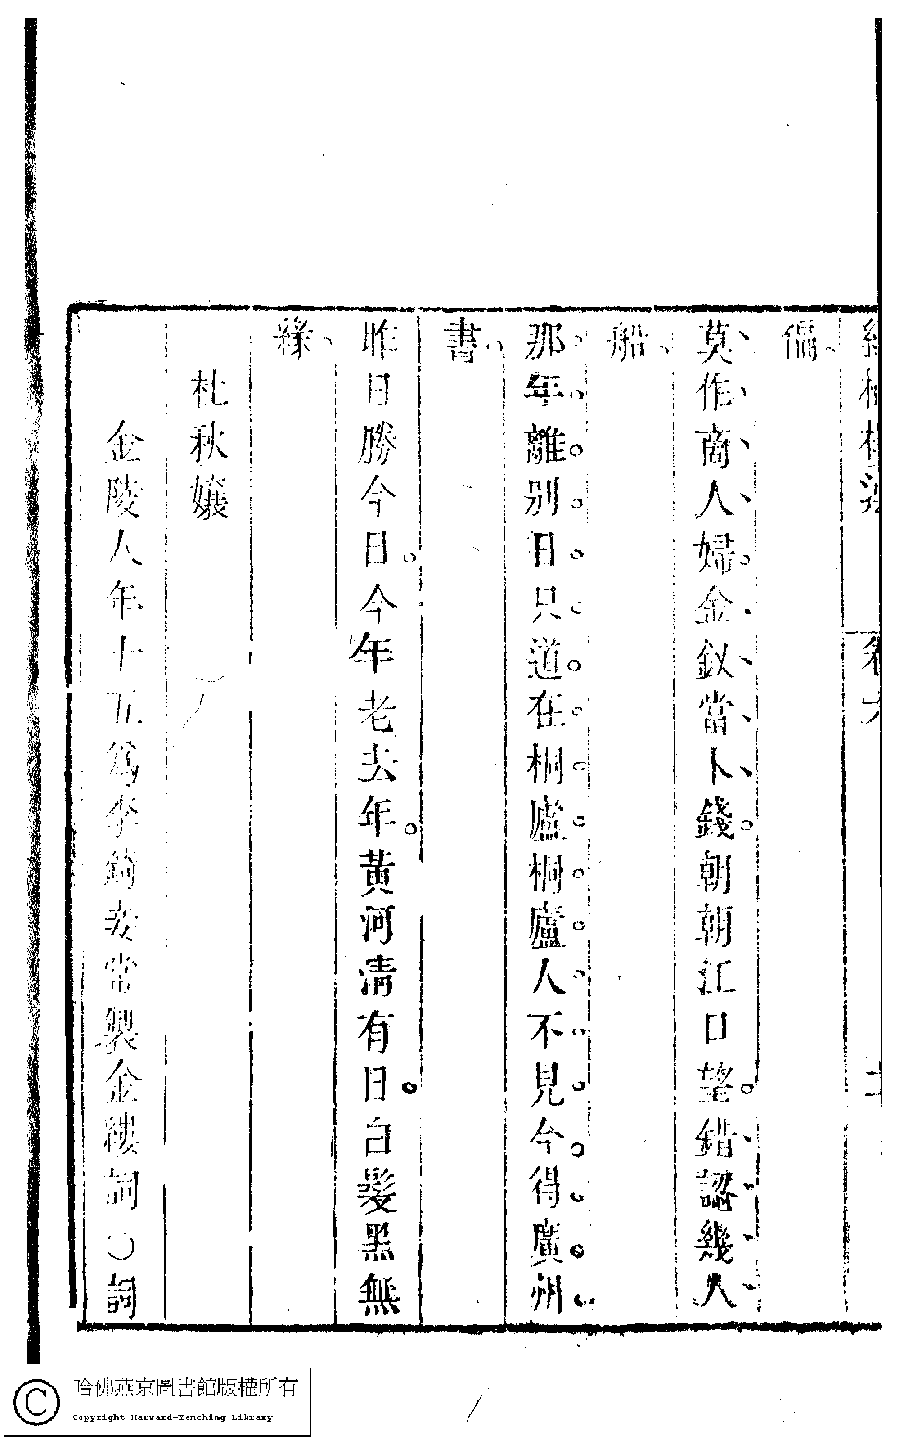 偏
莫作商人婦金釵當卜錢朝朝江口望錯認幾人
船
那年離別日只道在桐廬桐廬人不見今得廣州
書
昨日勝今日今年老去年黃河清有日白髮黑無
緣
杜秋孃
金陵人年十五爲李錡妾常製金縷詞○詞
哈佛燕京圖書館版權所有
Copyright Harvard-Yenching Library